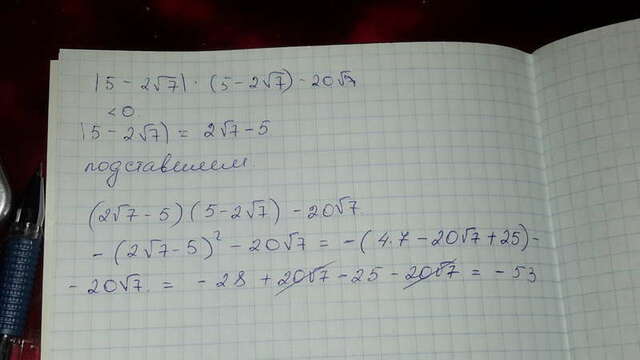 |5 - 2√7| · (5 - 2√7) - 20√7
< 0
|5 - 2√7| = 2√7 - 5
подставляем.
(2√7 - 5)(5 - 2√7) - 20√7
- (2√7 - 5)² - 20√7 = - (4·7 - 20√7 + 25) -
- 20√7 = - 28 + 20√7 - 25 - 20√7 = - 53